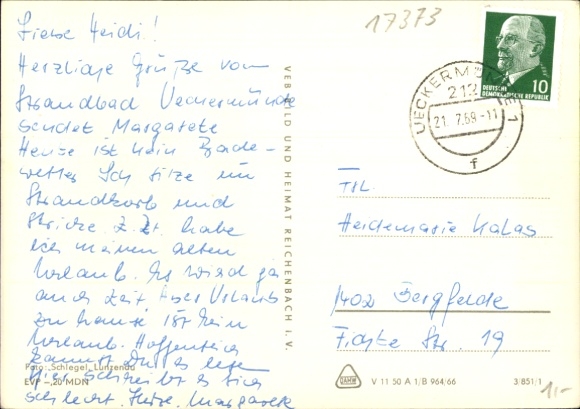 Liebe Heidi!
Herzliche Grüße vom
Strandbad Ueckermünde
sendet Margarete
Heute ist kein Bade-
wetter Ich sitze im
Strandkorb und
stricke. Z. Zt. habe
ich meinen alten
Urlaub. Es wird ja
auch Zeit
zu hause ist kein
Urlaub. Hoffentlich
kannst Du es lesen
hier schreibt es sich
schlecht. Margarete
Foto: Schlegel, Lunzenau
EVP -,20 MDN
VEB BILD UND HEIMAT REICHENBACH I. V.
17373
10
DEUTSCHE
DEMOKRATISCHE REPUBLIK
UECKERMÜNDE 1
21. 7. 68 - 11
f
Heidemarie Kalas
1402 Bergfelde
Fichte Str. 19
V 11 50 A 1/B 964/66
3 851/1
1,-